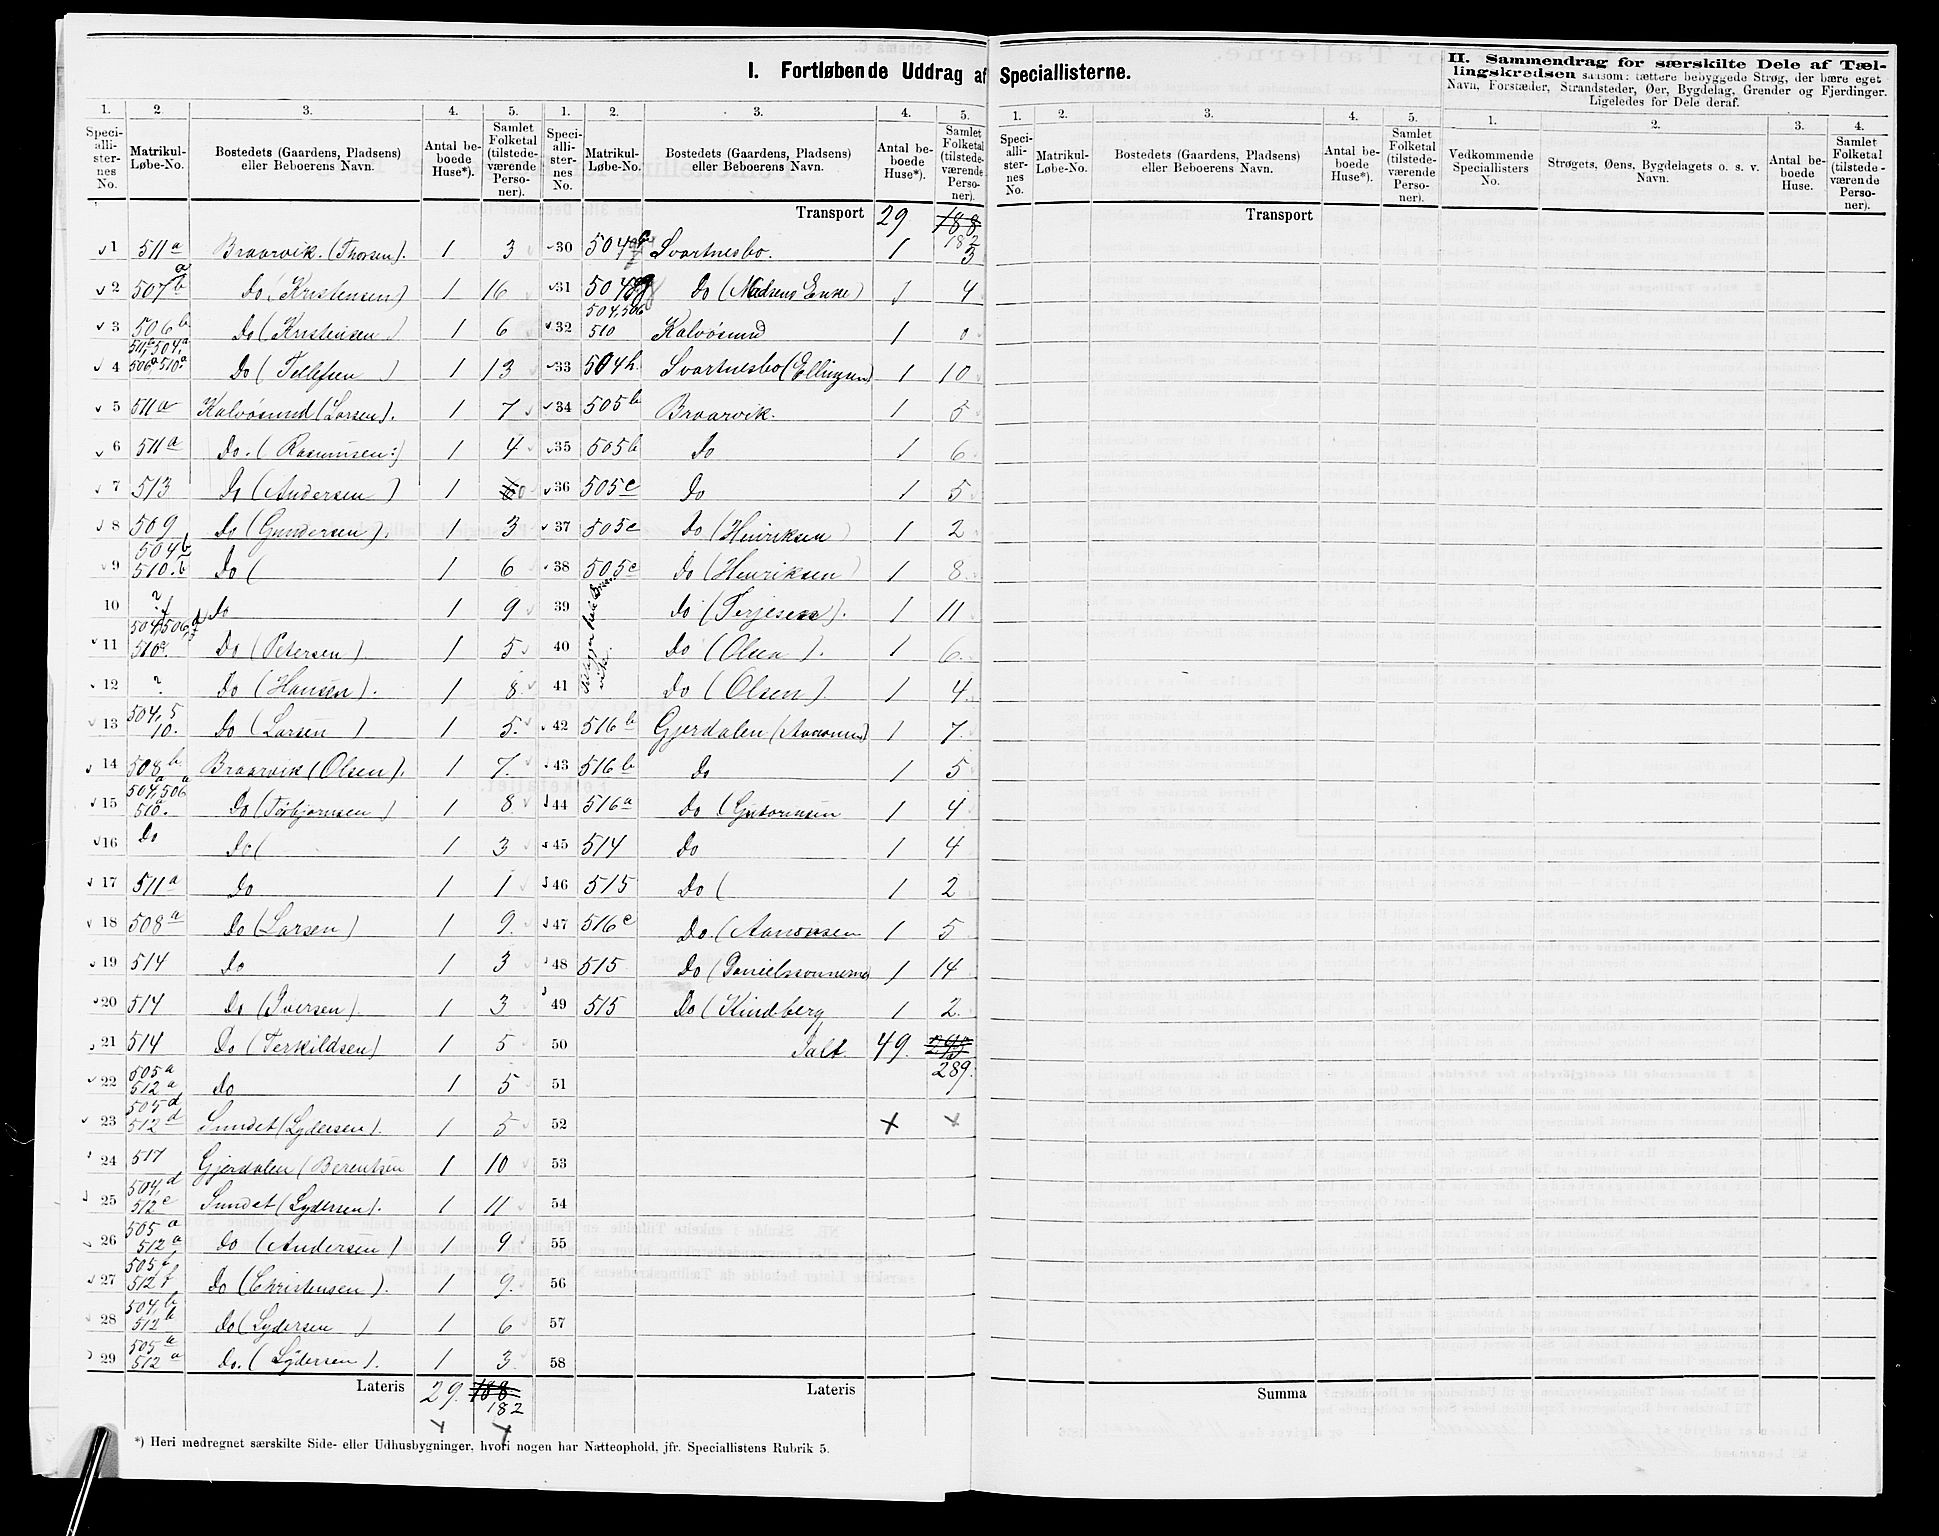 I. Fortløbende Uddrag af Speciallisterne.
II. Sammendrag for særskilte Dele af Tællingskredsen saasom: tættere bebyggede Strøg, der bære eget Navn, Forstæder, Strandsteder, Øer, Bygdelag, Grender og Fjerdinger. Ligeledes for Dele deraf.
1. 2 3. 4. 5. 1. 2. 3. 4. 5. 1. 2. 3. 4. 5. 1. 2. 3. 4.
Speciallisternes No. Matrikul-Løbe-No. Bostedets (Gaardens, Pladsens) eller Beboerens Navn. Antal beboede Huse*). Samlet Folketal (tilstedeværende Personer).
Speciallisternes No. Matrikul-Løbe-No. Bostedets (Gaardens, Pladsens) eller Beboerens Navn. Antal beboede Huse*). Samlet Folketal (tilstedeværende Personer).
Speciallisternes No. Matrikul-Løbe-No. Bostedets (Gaardens, Pladsens) eller Beboerens Navn. Antal beboede Huse*). Samlet Folketal (tilstedeværende Personer).
Vedkommende Speciallisters No. Strøgets, Øens, Bygdelagets o. s. v. Navn. Antal beboede Huse. Samlet Folketal (tilstedeværende Personer).
1 511a Braarvik. (Thorsen). 1 3
2 507 a b Do (Kristensen) 1 16
3 506b Do (Kristensen) 1 6
4 511a 504,a 506a 510a Do (Tellefsen) 1 13
5 511a Kalvøsund (Larsen). 1 7
6 511a Do. (Rasmusen:) 1 4
7 513 Do (Andersen) 1 0
8 509 Do (Gundersen). 1 3
9 504b 510.b Do ( 1 6
10 ? Do 1 9
11 504, 506, 510 Do (Petersen) 1 5
12 ? Do (Hansen). 1 8
13 504, 5 10. Do (Larsen) 1 5.
14 508b Braarvik (Olsen). 1 7.
15 504a, 506a 510a. Do (Torbjørnsen) 1 8
16 Do Do ( 1 3
17 511a Do 1 1
18 508a Do (Larsen) 1 9.
19 514 Do 1 3
20 514 Do (Iversen). 1 3
21 514 Do (Terkildsen) 1 5
22 505a 512a Do 1 5
23 505d 512d Sundet (Lydersen). 1 5
24 517 Gjerdalen (Berentsen 1 10
25 504,d 512c Sundet (Lydersen). 1 11
26 505a 512a Do (Andersen) 1 9
27 505f 512f Do (Christensen). 1 9.
28 504,b 512b Do (Lydersen) 1 6
29 505a 512a Do. (Lydersen). 1 3
Lateris 29. 188 182
Transport 29 188 182
30 504 Svartnesbo. 1 3
31 504g Do (Madsens Enke) 1 4
32 504, 506 510 Kalvøsund 1 0
33 504h. Svartnesbo (Ellingsen) 1 10
34 505b Braarvik. 1 5
35 505b Do 1 6
36 505c Do 1 5
37 505c Do (Henriksen) 1 2
38 505c Do (Henriksen) 1 8
39 Do (Terjesen). 1 11
40 Do (Olsen). 1 6.
41 Do (Olsen). 1 4
42 516b Gjerdalen (Aanonsen) 1 7.
43 516b Do 1 5
44 516a Do (Guttormsen 1 4
45 514 Do 1 4
46 515 Do ( 1 2
47 516c Do. (Aanonsen 1 5
48 515 Do (Danielssønnerne) 1 14
49 515 Do (Kindberg 1 2.
50 Ialt 49. 289.
51
52
53
54
55
56
57
58
Lateris
Transport
Summa
*) Heri medregnet særskilte Side- eller Udhusbygninger, hvori nogen har Natteophold, jfr. Speciallistens Rubrik 5.